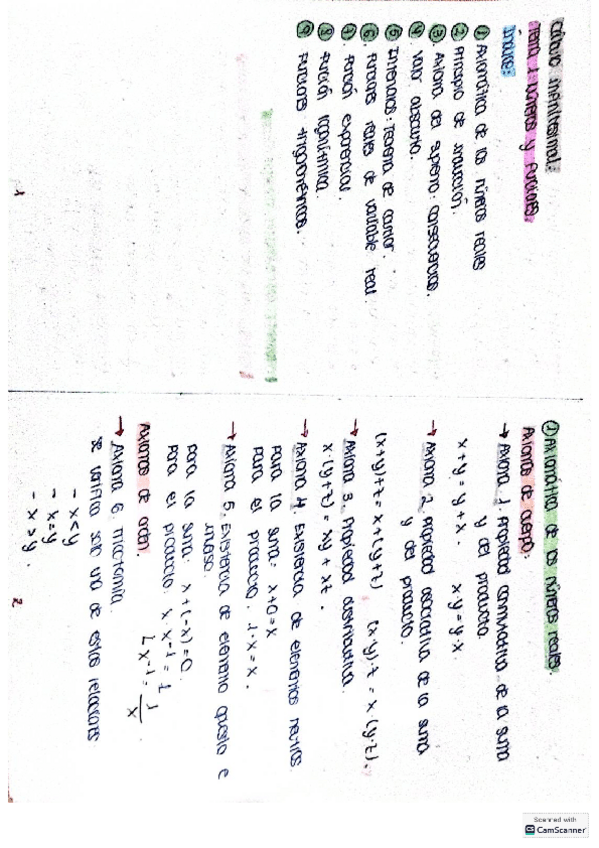 Cálculo infinitesimal:
Tema 1: números y funciones.
Índice:
① Axiomática de los números reales
② Principio de inducción.
③ Axioma del supremo: consecuencias.
④ Valor absoluto.
⑤ Intervalos: Teorema de Cantor.
⑥ Funciones reales de variable real
⑦ Función exponencial.
⑧ Función logarítmica.
⑨ Funciones trigonométricas.
1
① Axiomática de los números reales.
Axiomas de cuerpo:
→ Axioma 1. Propiedad conmutativa de la suma
y del producto.
x + y = y + x . x y = y · x .
→ Axioma 2. Propiedad asociativa de la suma
y del producto.
(x + y) + z = x + (y + z) (x · y) · z = x (y · z).
→ Axioma 3. Propiedad distributiva.
x · (y + z) = xy + xz .
→ Axioma 4. Existencia de elementos neutros.
Para la suma: x + 0 = x
Para el producto. 1 · x = x .
→ Axioma 5. Existencia de elemento opuesto e
inverso.
Para la suma: x + (-x) = 0.
Para el producto: x x⁻¹ = 1
x⁻¹ = 1/x .
Axiomas de orden.
→ Axioma 6. Tricotomía
se verifica solo una de estas relaciones
- x < y
- x = y
- x > y .
2
Scanned with
CamScanner